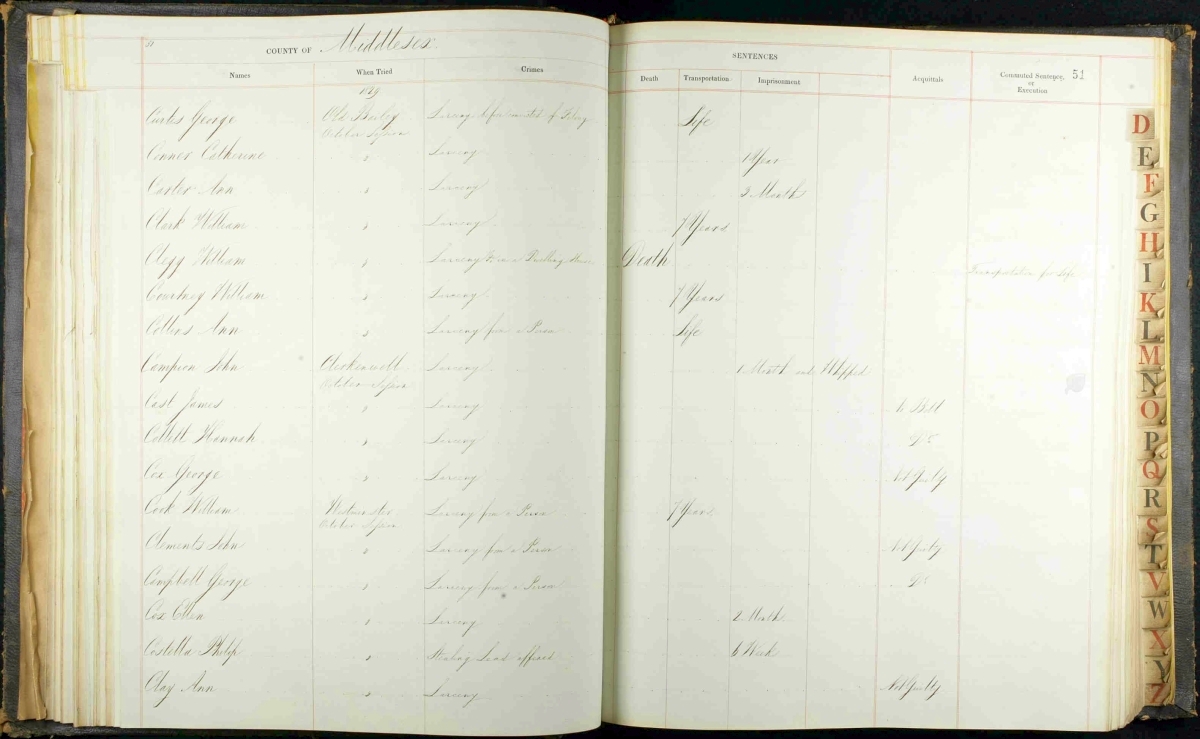 51
COUNTY OF Middlesex.
Names When Tried Crimes
SENTENCES
Death Transportation Imprisonment Acquittals Commuted Sentence, or Execution 51
1829
Curtis George Old Bailey Larceny before convicted of Felony Life
October Session
Connor Catherine " Larceny 1 Year
Carter Ann " Larceny 3 Months
Clark William " Larceny 7 Years
Clegg William " Larceny in a Dwelling House Death Transportation for Life
Courtney William " Larceny 7 Years
Collins Ann " Larceny from a Person Life
Campion John Clerkenwell Larceny 1 Month and Whipped
October Session
Cast James " Larceny No Bill
Cottell Hannah " Larceny Do
Cox George " Larceny Not Guilty
Cook William Westminster Larceny from a Person 7 Years
October Session
Clements John " Larceny from a Person Not Guilty
Campbell George " Larceny from a Person Do
Cox Ellen " Larceny 2 Months
Costella Philip " Stealing Lead affixed 6 Weeks
Clay Ann " Larceny Not Guilty
D
E
F
G
H
I
K
L
M
N
O
P
Q
R
S
T
V
W
X
Y
Z